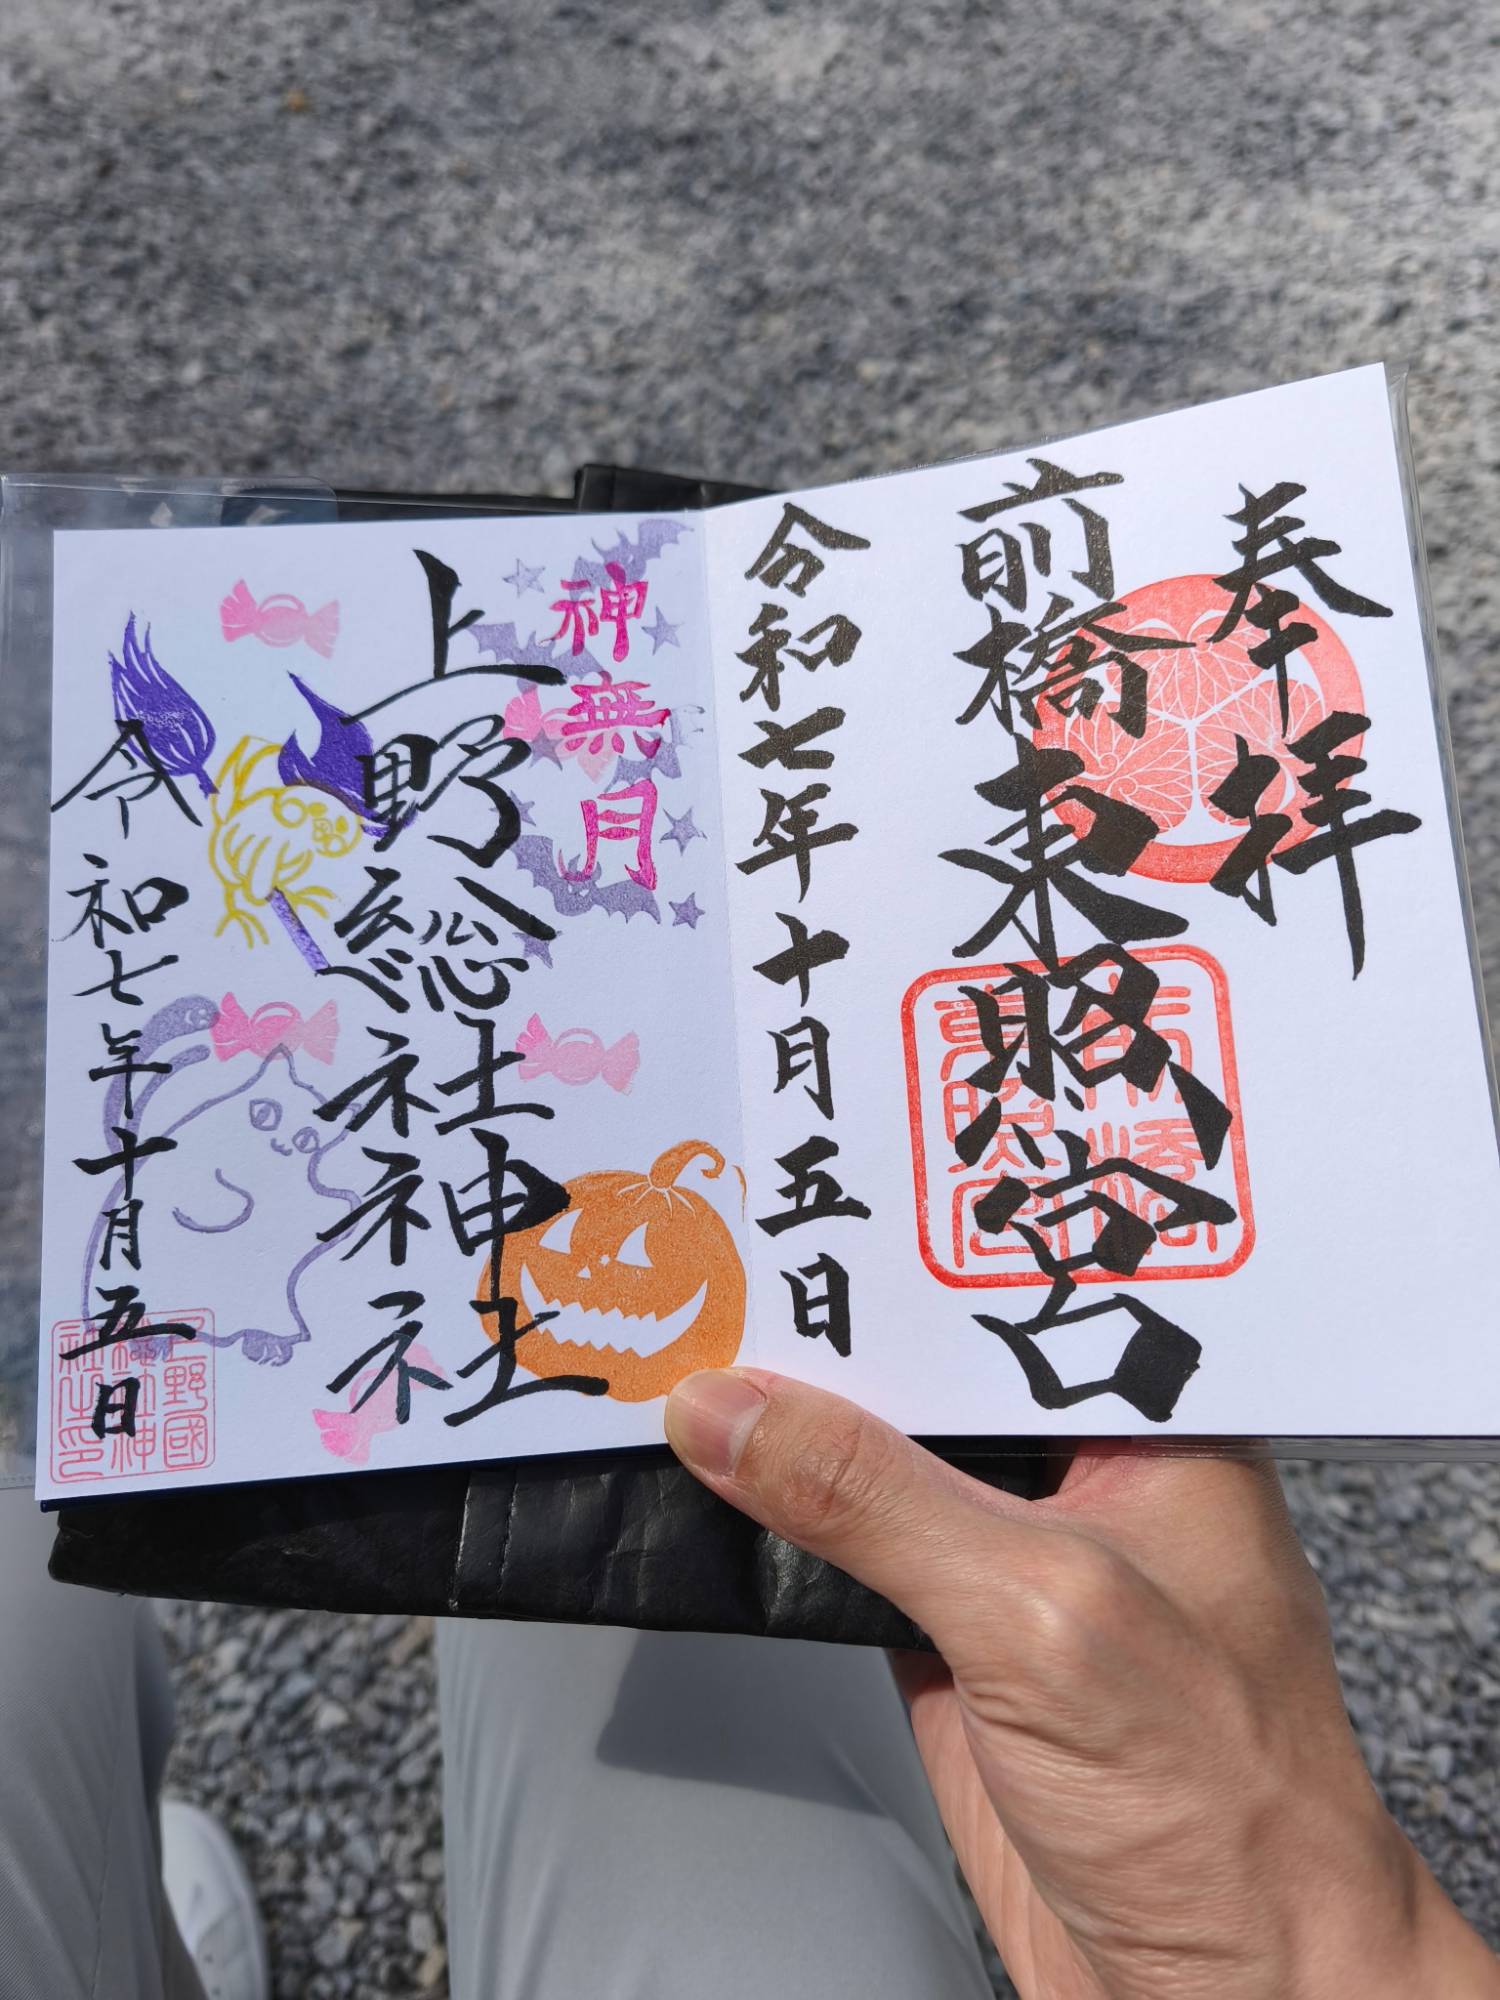 奉拝
前橋東照宮
令和七年十月五日
神無月
上野総社神社
令和七年十月五日
前橋
東照宮
上野國
総社神
社之印